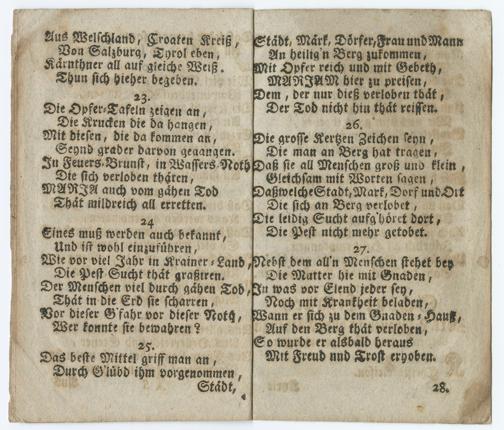 Aus Welschland, Croaten Kreiß,
Von Salzburg, Tyrol eben,
Kärnthner all auf gleiche Weiß.
Thun sich hieher begeben.
23.
Die Opfer-Tafeln zeigen an,
Die Krucken die da hangen,
Mit diesen, die da kommen an,
Seynd grader darvon gegangen.
In Feuers-Brunst, in Wassers-Noth
Die sich verloben thäten,
MARJA auch vom gähen Tod
Thät mildreich all erretten.
24
Eines muß werden auch bekannt,
Und ist wohl einzuführen,
Wie vor viel Jahr in Krainer-Land,
Die Pest Sucht thät grassiren.
Der Menschen viel durch gähen Tod,
Thät in die Erd sie scharren,
Vor dieser G'fahr vor dieser Noth,
Wer konnte sie bewahren?
25.
Das beste Mittel griff man an,
Durch G'lübd ihm vorgenommen,
Städt,
Städt, Märk, Dörfer, Frau und Mann
An heilig'n Berg zukommen,
Mit Opfer reich und mit Gebeth,
MARJAM hier zu preisen,
Dem, der nur dieß verloben thät,
Der Tod nicht hin thät reissen.
26.
Die grosse Kertzen Zeichen seyn,
Die man an Berg hat tragen,
Daß sie all Menschen groß und klein,
Gleichsam mit Worten sagen,
Daß welche Stadt, Mark, Dorf und Ort
Die sich an Berg verlobet,
Die leidig Sucht aufg'höret dort,
Die Pest nicht mehr getobet.
27.
Nebst dem all'n Menschen stehet bey
Die Mutter hie mit Gnaden,
In was vor Elend jeder sey,
Noch mit Krankheit beladen,
Wann er sich zu dem Gnaden-Hauß,
Auf den Berg thät verloben,
So wurde er alsbald heraus
Mit Freud und Trost erhoben.
28.